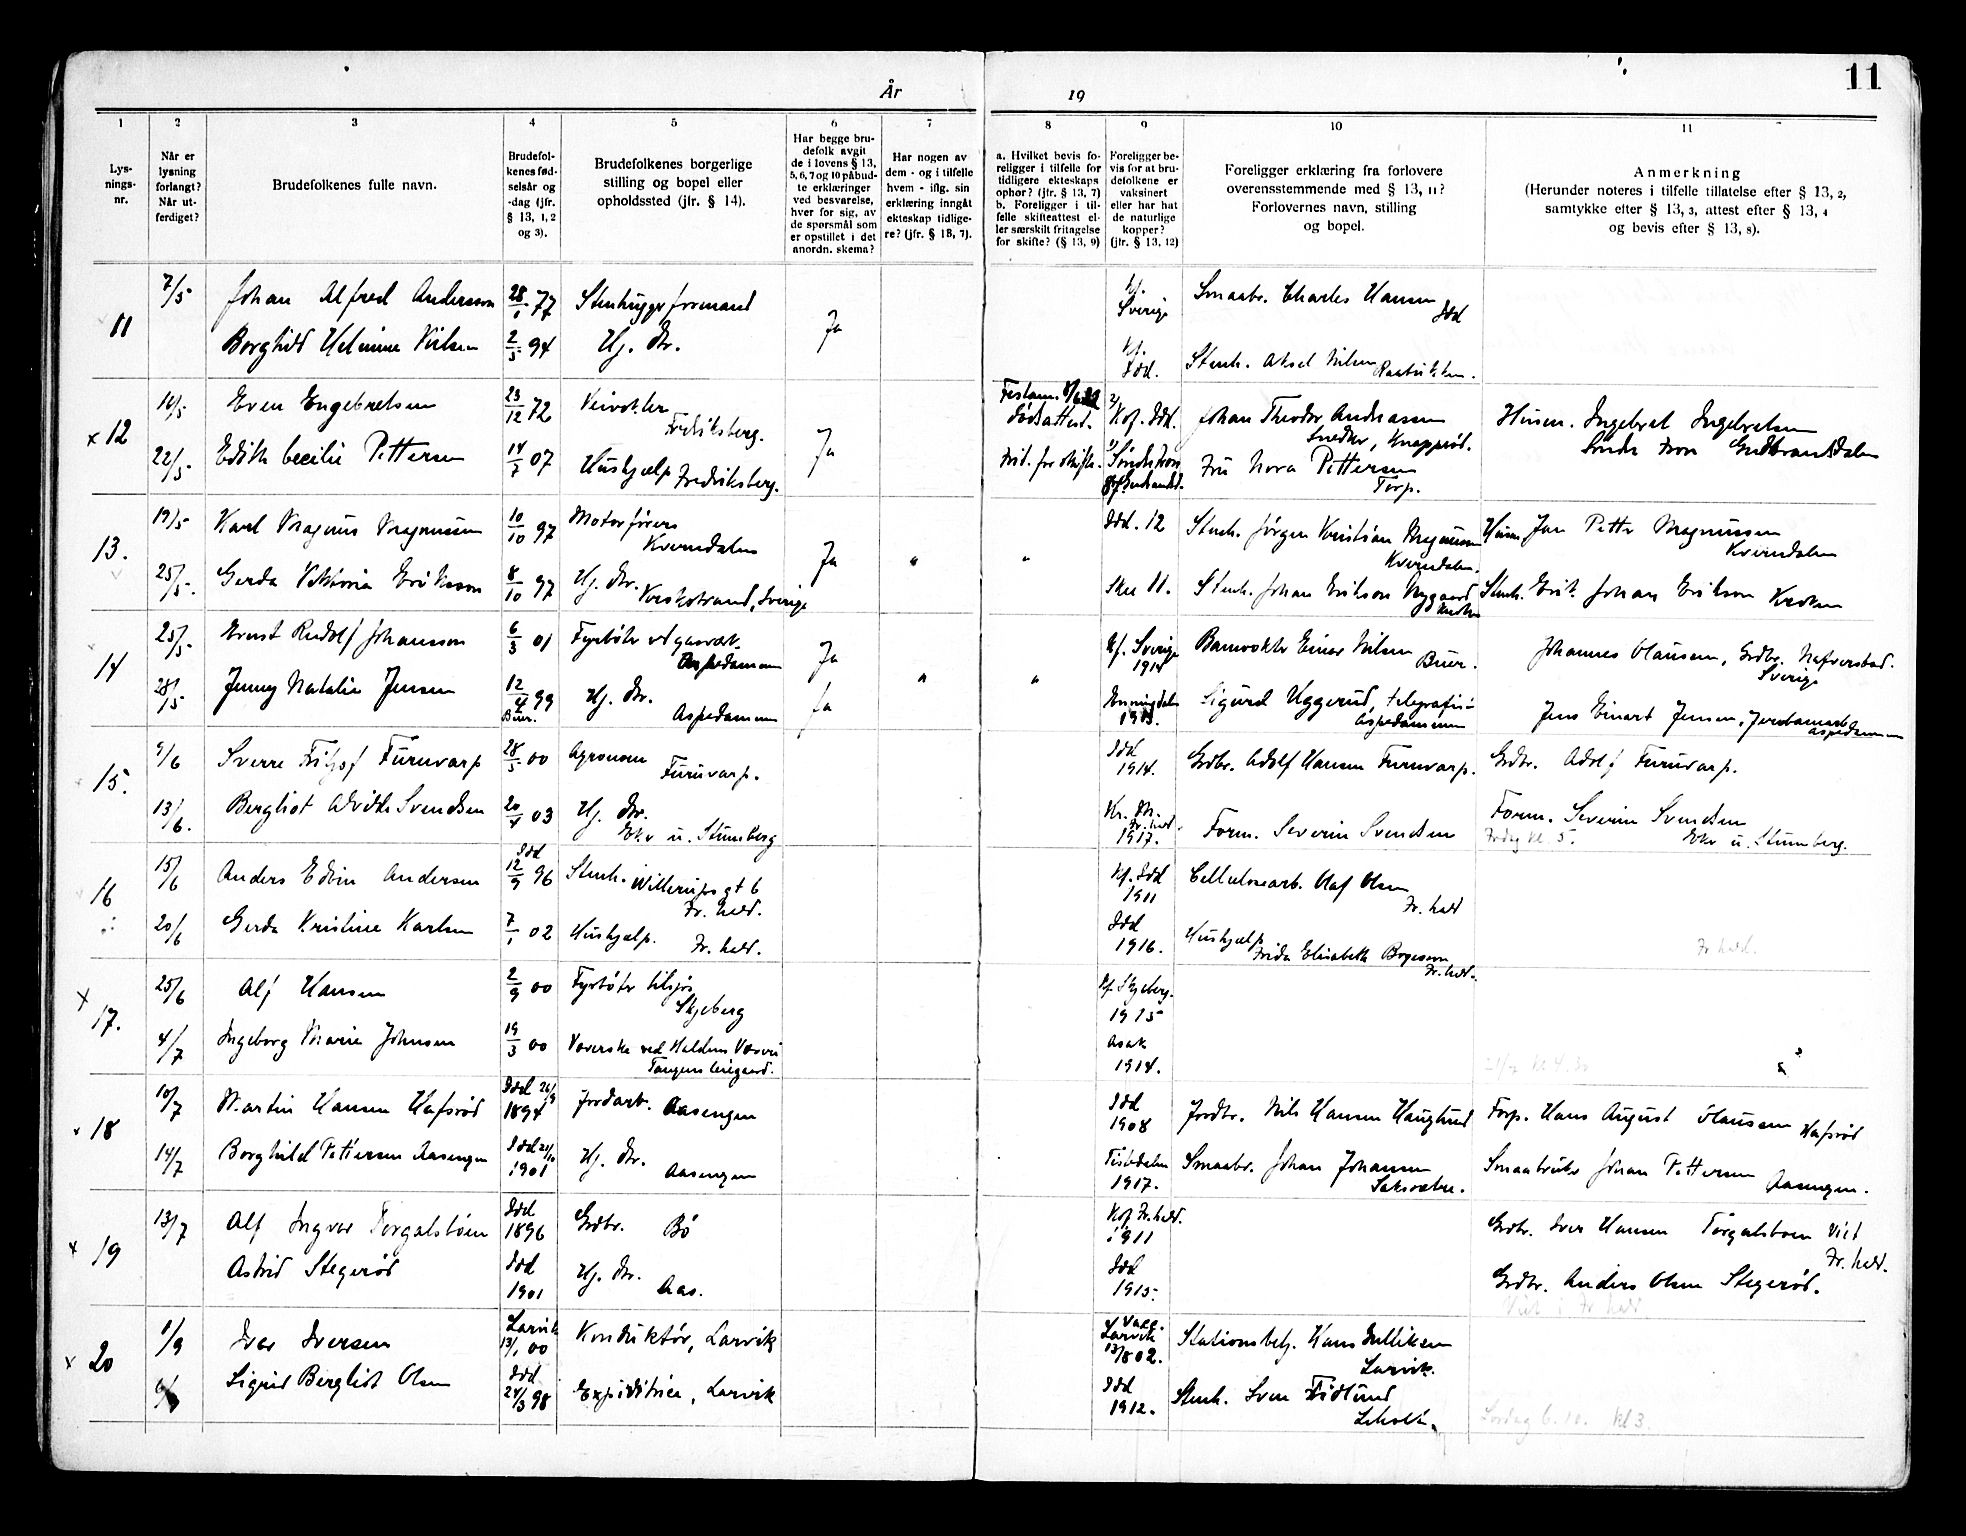 11
År
19
1
2
3
4
5
6
7
8
9
10
11
Lys-
nings-
nr.
Når er
lysning
forlangt?
Når ut-
ferdiget?
Brudefolkenes fulle navn.
Brudefol-
kenes fød-
selsår og
-dag (jfr.
§ 13, 1, 2
og 3).
Brudefolkenes borgerlige
stilling og bopel eller
opholdssted (jfr. § 14).
Har begge bru-
defolk avgit
de i lovens § 13,
5, 6, 7 og 10 påbud-
te erklæringer
ved besvarelse,
hver for sig, av
de spørsmål som
er opstillet i det
anordn. skema?
Har nogen av
dem - og i tilfelle
hvem - iflg. sin
erklæring inngåt
ekteskap tidlige-
re? (jfr. § 18, 7).
a. Hvilket bevis fo-
religger i tilfelle for
tidligere ekteskaps
ophør? (jfr. § 13, 7)
b. Foreligger i til-
felle skifteattest el-
ler særskilt fritagelse
for skifte? (§ 13, 9)
Foreligger be-
vis for at bru-
defolkene er
vaksinert
eller har hat
de naturlige
kopper?
(jfr. § 13, 12)
Foreligger erklæring fra forlovere
overensstemmende med § 13, 11?
Forlovernes navn, stilling
og bopel.
Anmerkning
(Herunder noteres i tilfelle tillatelse efter § 13, 2,
samtykke efter § 13, 3, attest efter § 13, 4
og bevis efter § 13, 8).
11
7/5 Johan Alfred Andersson 28/1 77 Stenhuggerformand Ja Sverige Smaabr. Charles Hansen Idd
Borghild Helmine Nilsen 2/5 94 Hj. dtr. Idd. Stenh. Aksel Nilsen
x 12
14/5 Even Engebretsen 23/12 72 Veivokter Fredriksberg. Ja Dødsattest. Kof. Idd. Johan Theodor Andreassen Snedker, Knapprød. Husm. Ingebret Ingebretsen
Søndre Fron Gudbrandsdalen
22/5 Edith Cecilie Pettersen 14/7 07 Hushjælp Fredriksberg. Frit. for skifte. Fru Nora Pettersen Torp.
13.
19/5 Karl Magnus Magnussen 10/10 97 Motorfører Kverndalen Ja " " Idd. 12 Stenh. Jørgen Kristian Magnussen Kverndalen. Husm. Jan Petter Magnussen Kverndalen
25/5. Gerda Viktoria Eriksson 8/10 97 Hj. dtr. Krokstrand, Sverige Skee 11. Stenh. Johan Erikson Nygaard Stenh. Erik Johan Erikson Kroken
14
25/5 Ernst Rudolf Johansson 6/3 01 Fyrbøter v/ gasverk. Aspedammen Ja " " Kf. Sverige 1914 Banevokter Einar Nilsen Buer. Johannes Olausen, Grdbr. Nafverstad. Sverige
28/5 Jenny Natalie Jensen 12/4 99 Buer. Hj. dtr. Aspedammen Ja Enningdalen 1913. Sigurd Uggerud, telegrafist Aspedammen Jens Einart Jensen, Aspedammen
15.
9/6 Sverre Fritjof Furuvarp 28/5 00 Agronom Furuvarp. Idd 1914. Grdbr. Adolf Hansen Furuvarp. Grdbr. Adolf Furuvarp.
13/6. Bergliot Alvilde Svendsen 20/4 03 Hj. dtr. Ekv u. Stumberg Fr.hald. 1917. Form. Severin Svendsen Form. Severin Svendsen
Fredag kl. 5. Ekv u. Stumberg.
16
15/6 Anders Edvin Andersen Idd 12/9 96 Stenh. Willerups gt 6 Fr. hald. Kf. Idd 1911 Cellulosearb. Olaf Olsen Fr. hald
20/6 Gerda Kristine Karlsen 7/1 02 Hushjælp. Fr. hald. Idd 1916. Hushjælp Frida Elisabeth Borgesson Fr. hald. Fr. hald.
x 17.
25/6 Alf Hansen 2/9 00 Fyrbøter tilsjøs Skjeberg Kf. Skjeberg. 1915
4/7 Ingeborg Marie Johnsen 19/3 00 Væverske ved Haldens Væveri Tangens teiegaard. Asak 1914. kl 4.30
x 18
10/7 Martin Hansen Hafsrød Idd 26/9 1894 Jordarb. Aasengen Idd 1908 Jordbr. Nils Hansen Hauglund Forp. Hans August Hansen Hafsrød
14/7 Borghild Pettersen Aasengen Idd 21/10 1901 Hj. dtr. Aasengen Tistedalen 1917. Smaabr. Johan Johansen Saksvatne. Smaabruker Johan Pettersen Aasengen.
x 19
13/7 Alf Ingvar Torgalsbøen Idd 1896 Grdbr. Bø Kof Fr.hald. 1911 Grdbr. Iver Hansen Torgalsboen Viet Fr. hald.
Astrid Stegerød Idd 1901 Hj. dtr. Aas. Idd 1915. Grdbr. Anders Olsen Stegerød.
Viet i Fr hald
x 20
1/9 Ivar Iversen Larvik 13/1 00 Konduktør, Larvik Vacc. Larvik 13/8 02. Stationsbetj. Hans Gulliksen Larvik.
Sigrid Bergliot Olsen Idd 24/3 98 Expeditrice, Larvik Idd 1912. Stenh. Sven Lidlund Liholt. Lørdag 6.10. kl 3.